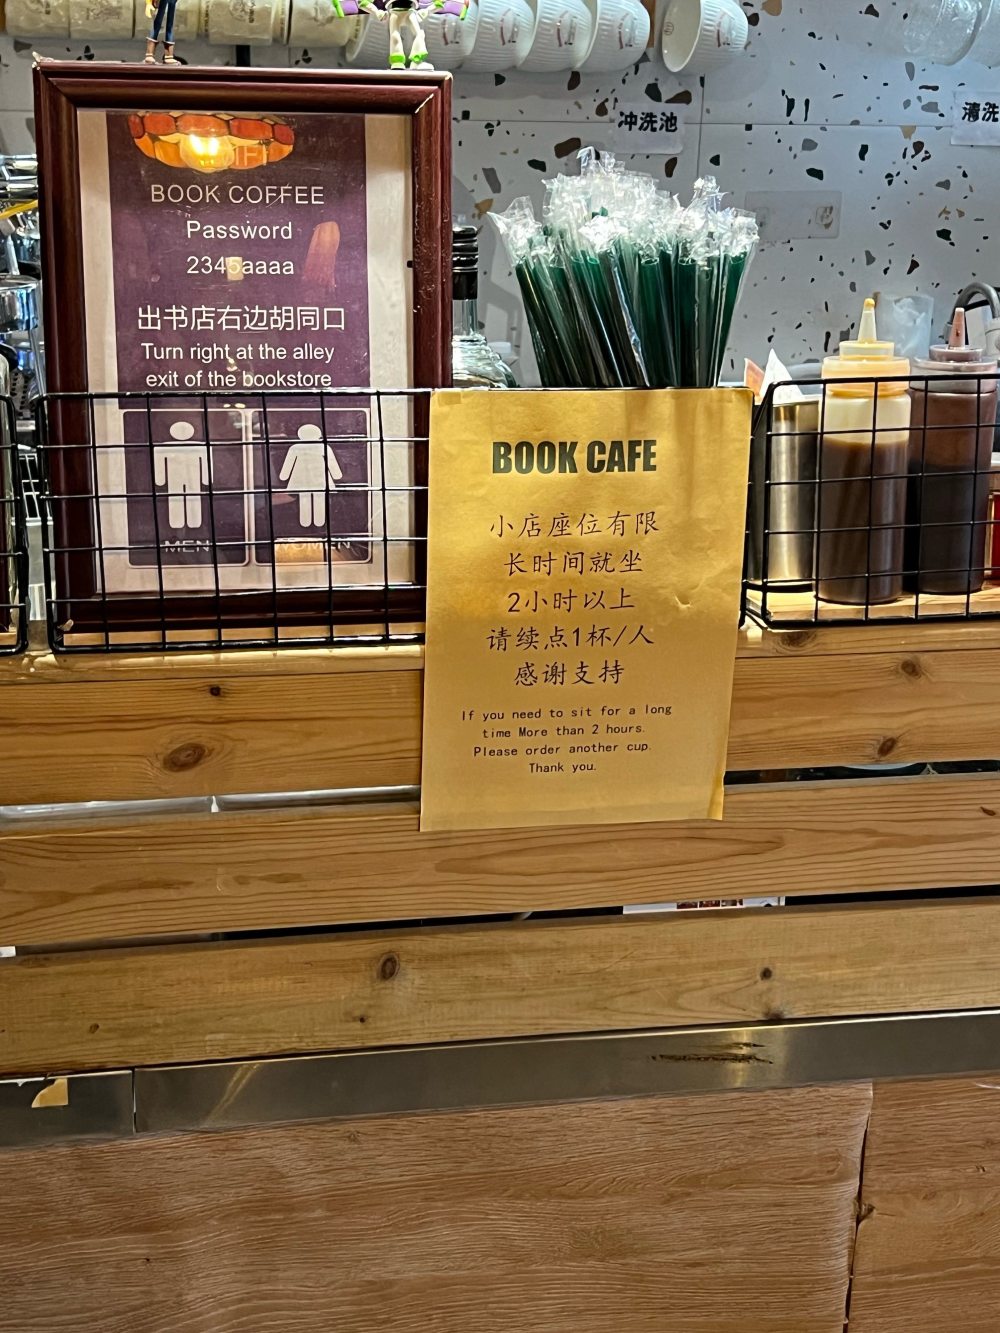 WIFI
BOOK COFFEE
Password
2345aaaa
出书店右边胡同口
Turn right at the alley
exit of the bookstore
MEN
WOMEN
冲洗池
清洗
BOOK CAFE
小店座位有限
长时间就坐
2小时以上
请续点1杯/人
感谢支持
If you need to sit for a long
time More than 2 hours.
Please order another cup.
Thank you.